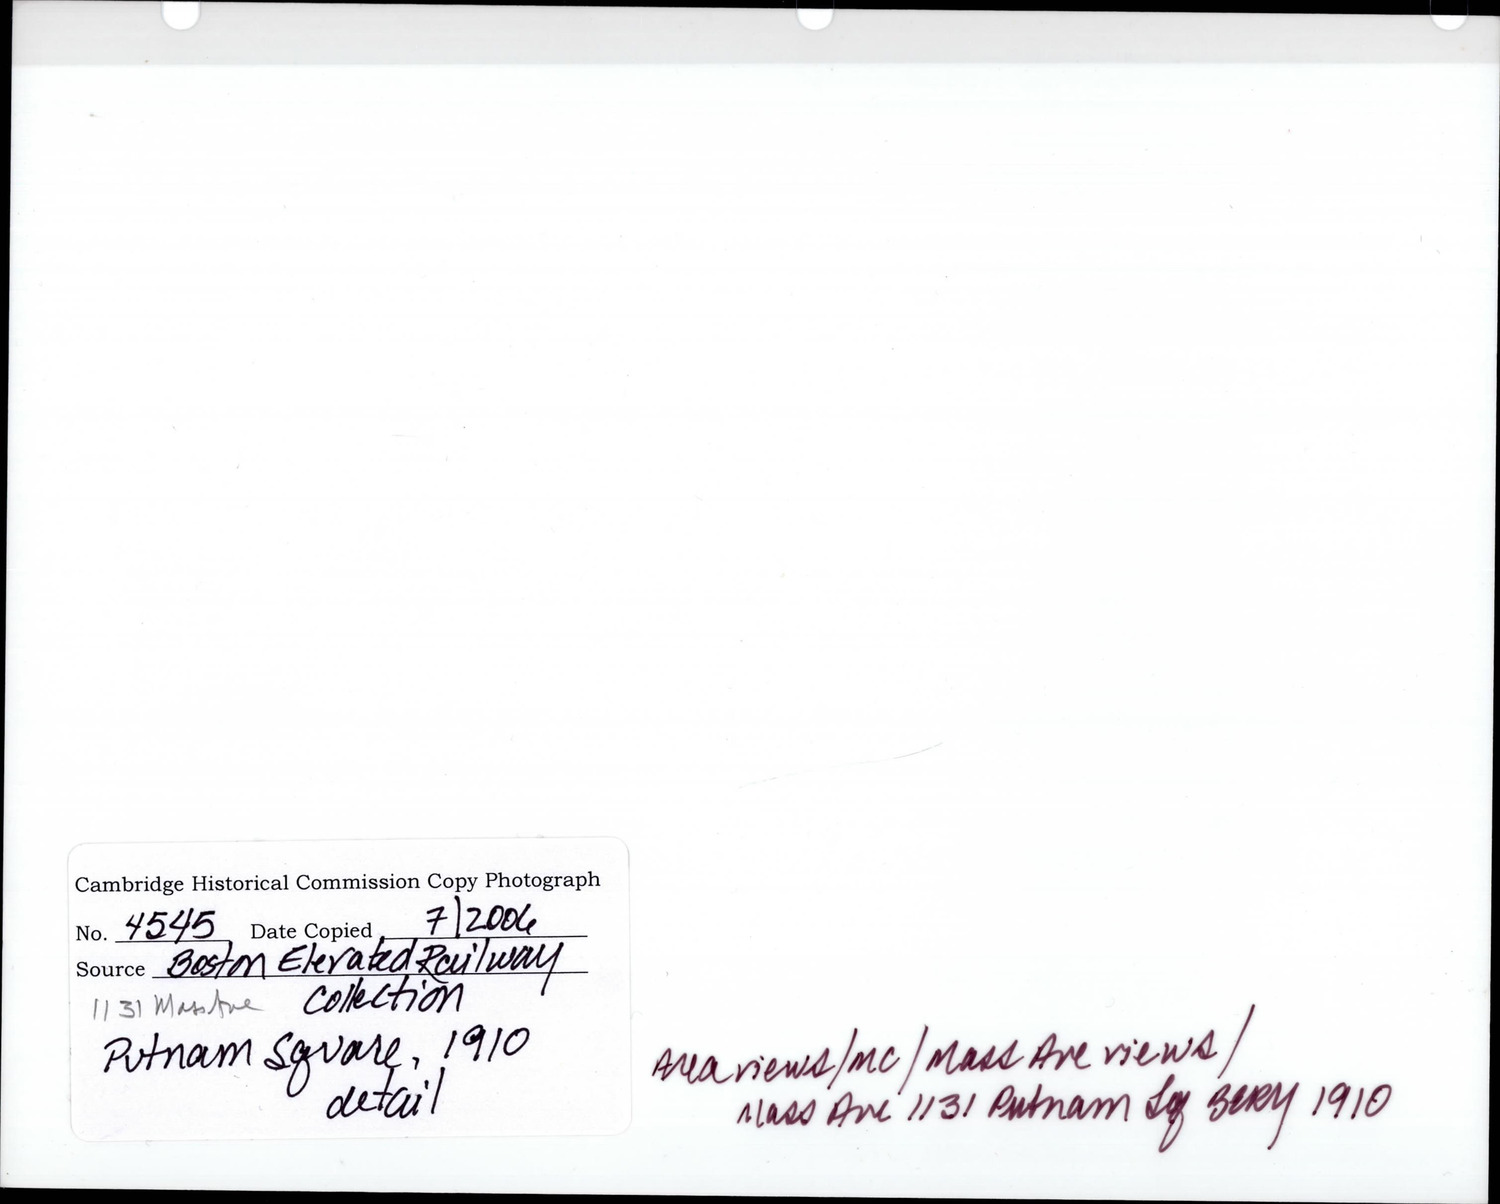 Cambridge Historical Commission Copy Photograph
No. 4545 Date Copied 7/2006
Source Boston Elevated Railway
1131 Mass Ave Collection
Putnam Square, 1910
detail
Area views/MC/Mass Ave views/
Mass Ave 1131 Putnam Sq BERY 1910